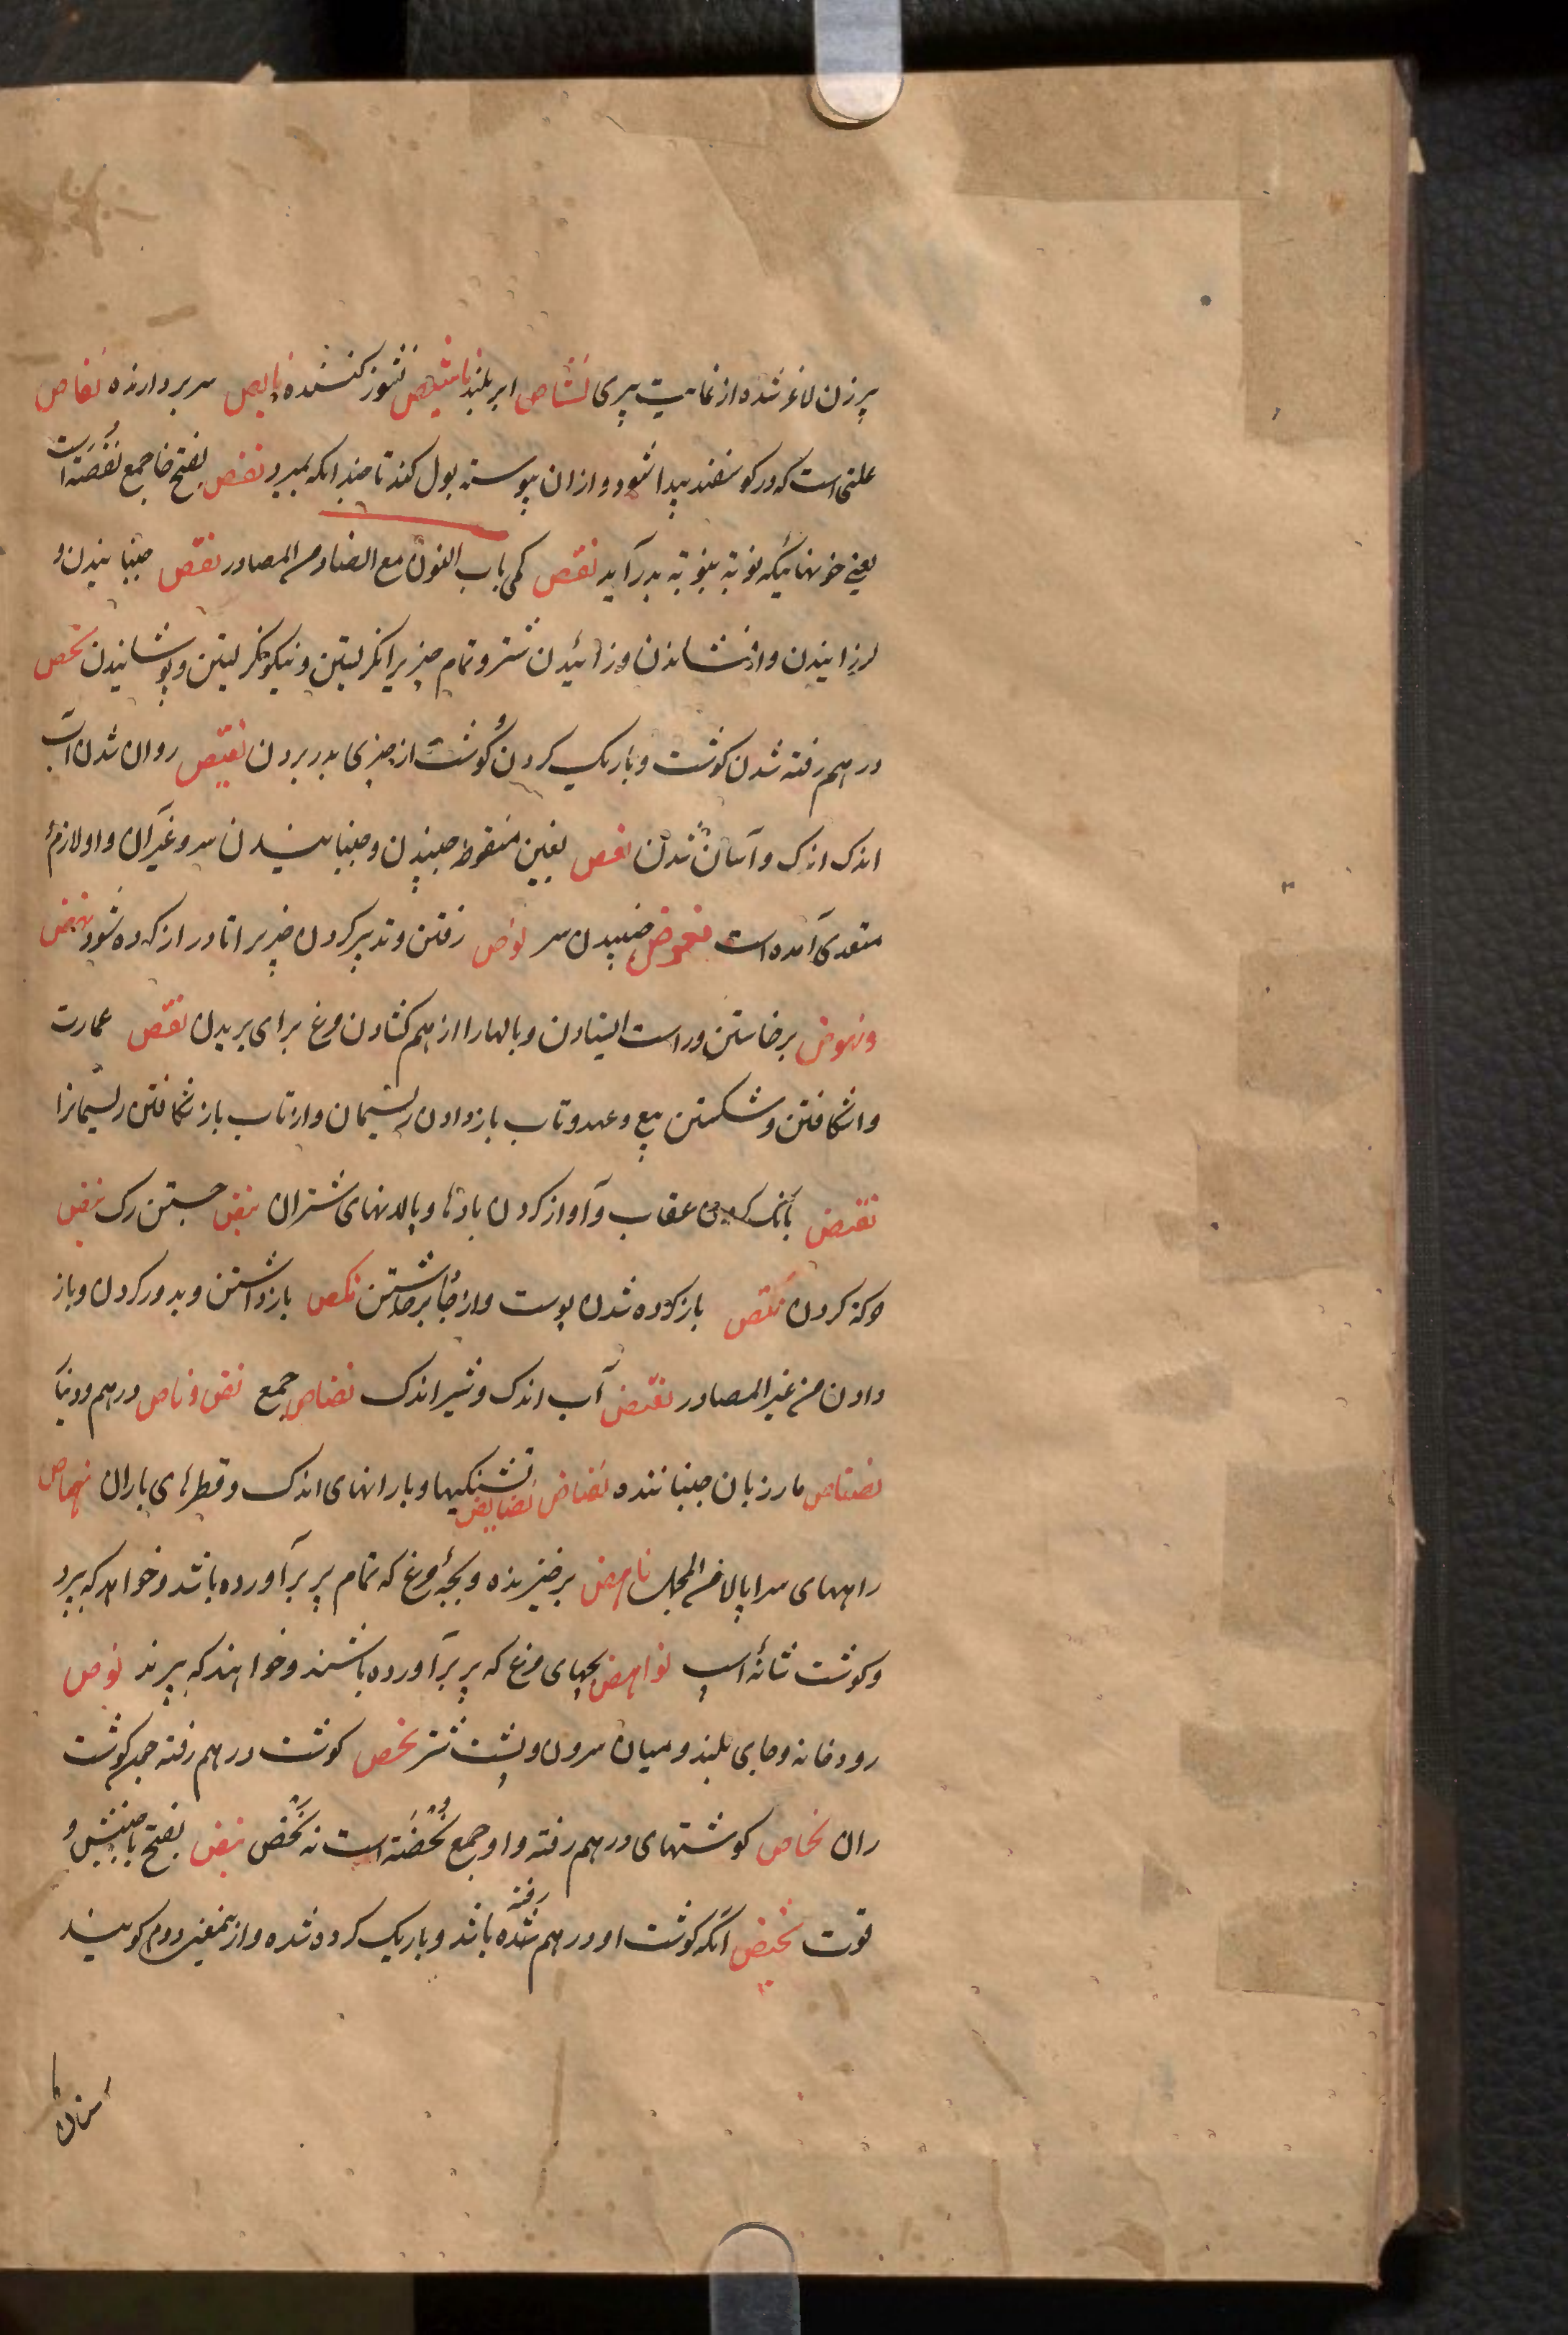 پیر زن لاغر شده از غایت پیری نشاص ابر بلند ناشیص نشوز کننده نایص سر بردارنده نفاص
علتی است که در کوسفند پیدا شود و ازان پیوسته بول کند تا چندانکه بمیرد نفص بفتح فا جمع نفصته است
یعنی خونهائیکه نوبته بنوبته بدر آید نقص کمی باب النون مع الضاد من المصادر نفض جنبانیدن و
لرزانیدن و افشاندن و زائیدن شتر و تمام چیزیرا نکریستن و نیکو نکریستن و پوشانیدن نحص
درهم رفته شدن کوشت و باریک کردن و کوشت از چیزی بدر بردن نضیض روان شدن آب
اندک اندک و آسان شدن نغص بغین منقوطه جنبیدن و جنبانیدن سر و غیرآن و او لازم و
متعدی آمده است نغوض جنبیدن سر نوض رفتن و تدبیر کردن چیزیرا تا دراز کرده شود نهض
و نهوض برخاستن و راست ایستادن و بالها را از هم کشادن مرغ برای پریدن نقض عمارت
و اشکافتن و شکستن بیع و عهد و تاب باز دادن ریسمان و از تاب باز شکافتن ریسمانرا
نقیض بانک کردن عقاب و آواز کردن بادها و پالانهای شتران نبض جستن رک نبض
حرکه کردن نتض باز کرده شدن پوست و از جا برخاستن نکص بازداشتن و بدور کردن و باز
دادن من غیر المصادر نضیض آب اندک و شیر اندک نضاض جمع نض و ناض درهم و دینار
نضناض مار زبان جنباننده نضاض نضایض تشنکیها و بارانهای اندک و قطرهای باران نهاض
راههای سرابالا من المجمل ناهض برخیزنده و بچۀ مرغ که تمام پر برآورده باشد و خواهد که بپرد
و کوشت شانۀ اسپ نواهض بچهای مرغ که پر برآورده باشند و خواهند که بپرند نوض
رودخانه و جای بلند و میان سرون و پشت شتر نحض کوشت درهم رفته چون کوشت
ران نحاض کوشتهای درهم رفته و او جمع نحضته است نه نحض نبض بفتح با جنبش و
قوت نحیض آنکه کوشت او درهم رفته شده باشد و باریک کرده شده و از بمعنی دوم کویند